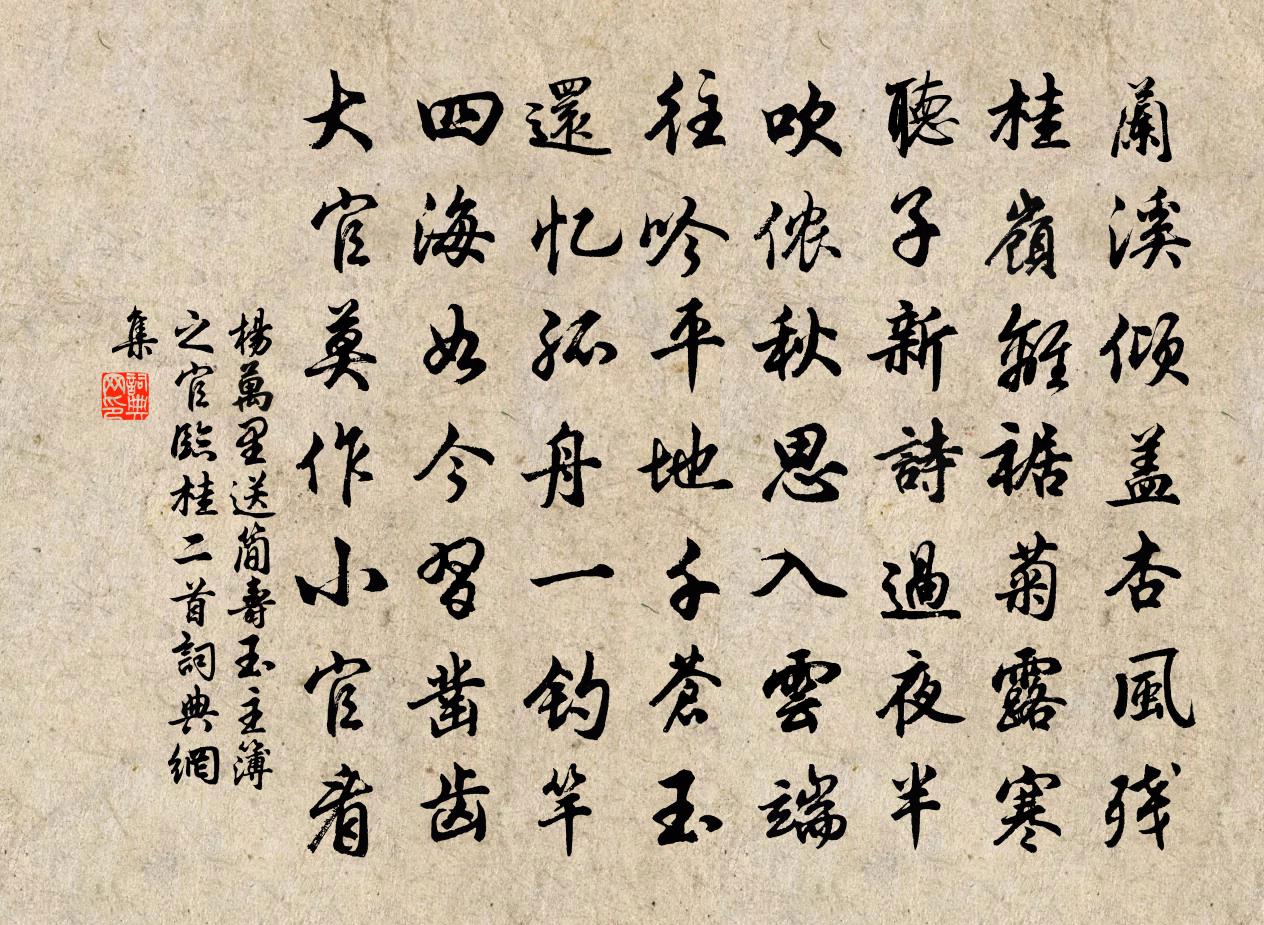 蘭溪傾盖杏風殘
桂嶺離裾菊露寒
聽子新詩過夜半
吹儂秋思入雲端
往吟平地千蒼玉
還忆孤舟一钓竿
四海如今習凿齿
大官莫作小官看
楊萬里送簡壽玉主簿
之官臨桂二首詞典網
集
詞典网印